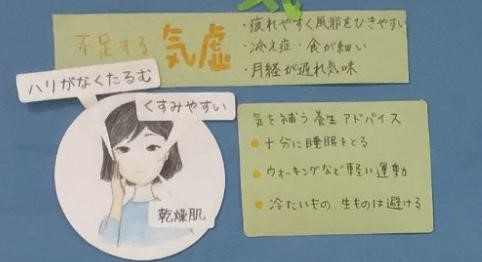 不足する 気虚
・疲れやすく風邪をひきやすい
・冷え症・食が細い
・月経が遅れ気味
ハリがなくたるむ
くすみやすい
乾燥肌
気を補う養生アドバイス
● 十分に睡眠をとる
● ウォーキングなど軽い運動
● 冷たいもの、生ものは避ける